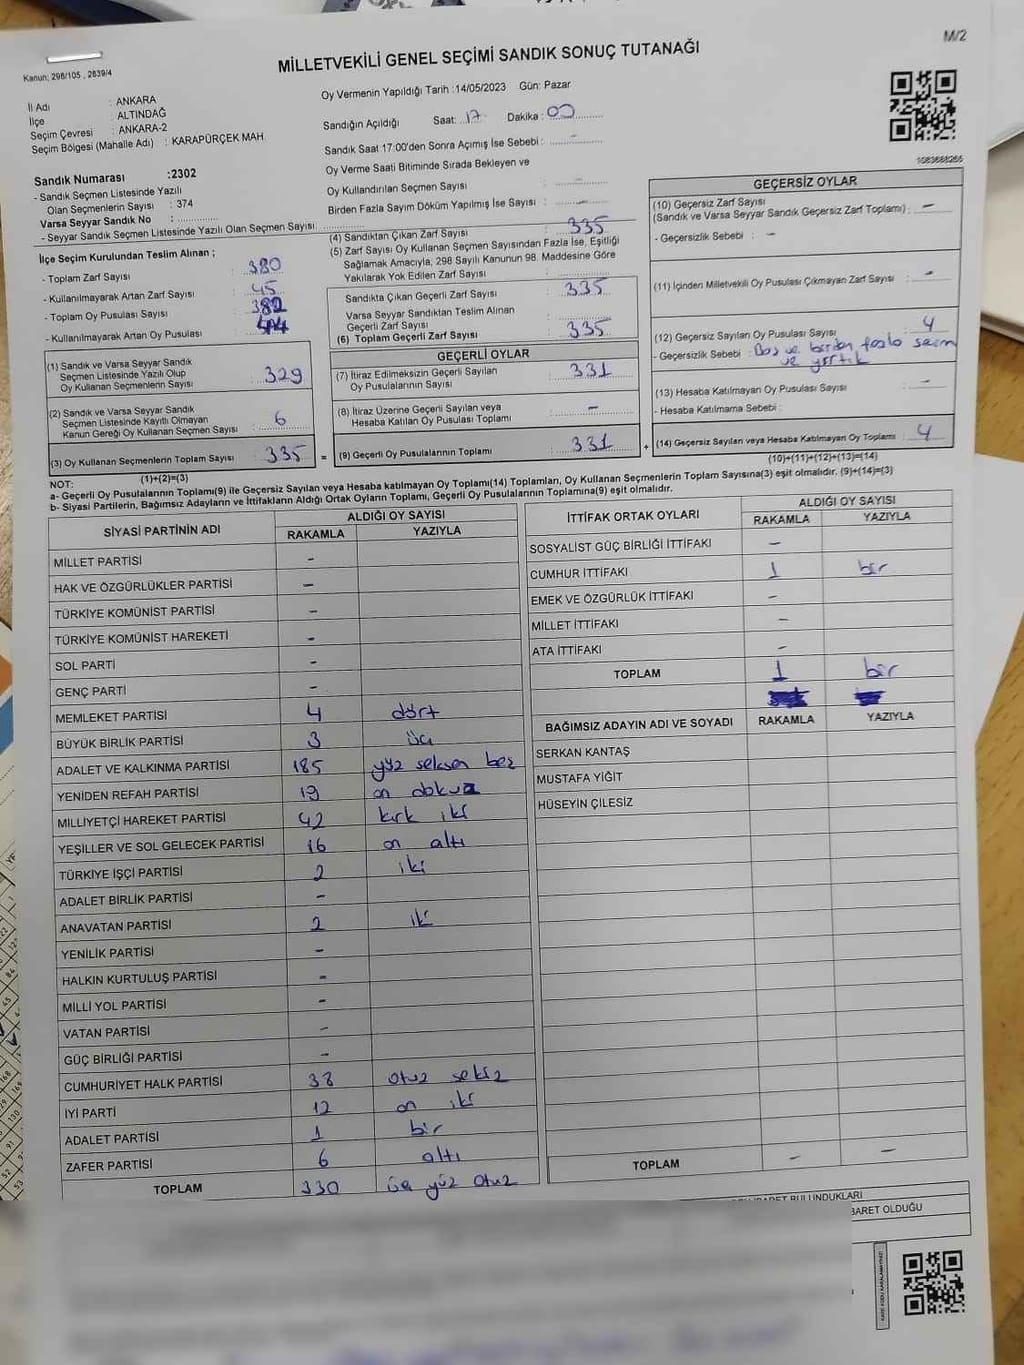 M/2
MİLLETVEKİLİ GENEL SEÇİMİ SANDIK SONUÇ TUTANAĞI
Kanun; 298/105 , 2839/4
İl Adı : ANKARA
İlçe : ALTINDAĞ
Seçim Çevresi : ANKARA-2
Seçim Bölgesi (Mahalle Adı) : KARAPÜRÇEK MAH.
Sandık Numarası :2302
- Sandık Seçmen Listesinde Yazılı
Olan Seçmenlerin Sayısı : 374
Varsa Seyyar Sandık No :
- Seyyar Sandık Seçmen Listesinde Yazılı Olan Seçmen Sayısı
Oy Vermenin Yapıldığı Tarih :14/05/2023 Gün: Pazar
Sandığın Açıldığı Saat: 17 Dakika : 00
Sandık Saat 17:00'den Sonra Açımış İse Sebebi : -
Oy Verme Saati Bitiminde Sırada Bekleyen ve
Oy Kullandırılan Seçmen Sayısı : -
Birden Fazla Sayım Döküm Yapılmış İse Sayısı : -
1083688265
İlçe Seçim Kurulundan Teslim Alınan ;
- Toplam Zarf Sayısı : 380
- Kullanılmayarak Artan Zarf Sayısı : 45
- Toplam Oy Pusulası Sayısı : 382
- Kullanılmayarak Artan Oy Pusulası :
(1) Sandık ve Varsa Seyyar Sandık
Seçmen Listesinde Yazılı Olup
Oy Kullanan Seçmenlerin Sayısı : 329
(2) Sandık ve Varsa Seyyar Sandık
Seçmen Listesinde Kayıtlı Olmayan
Kanun Gereği Oy Kullanan Seçmen Sayısı : 6
(3) Oy Kullanan Seçmenlerin Toplam Sayısı : 335
(1)+(2)=(3)
(4) Sandıktan Çıkan Zarf Sayısı : 335
(5) Zarf Sayısı Oy Kullanan Seçmen Sayısından Fazla İse, Eşitliği
Sağlamak Amacıyla, 298 Sayılı Kanunun 98. Maddesine Göre
Yakılarak Yok Edilen Zarf Sayısı :
Sandıkta Çıkan Geçerli Zarf Sayısı : 335
Varsa Seyyar Sandıktan Teslim Alınan
Geçerli Zarf Sayısı :
(6) Toplam Geçerli Zarf Sayısı : 335
GEÇERLİ OYLAR
(7) İtiraz Edilmeksizin Geçerli Sayılan
Oy Pusulasının Sayısı : 331
(8) İtiraz Üzerine Geçerli Sayılan veya
Hesaba Katılan Oy Pusulası Toplamı : -
= (9) Geçerli Oy Pusulalarının Toplamı : 331
GEÇERSİZ OYLAR
(10) Geçersiz Zarf Sayısı
(Sandık ve Varsa Seyyar Sandık Geçersiz Zarf Toplamı) : -
- Geçersizlik Sebebi : -
(11) İçinden Milletvekili Oy Pusulası Çıkmayan Zarf Sayısı : -
(12) Geçersiz Sayılan Oy Pusulası Sayısı : 4
- Geçersizlik Sebebi : Boş ve birden fazla seçim
ve yırtık
(13) Hesaba Katılmayan Oy Pusulası Sayısı : -
- Hesaba Katılmama Sebebi :
+ (14) Geçersiz Sayılan veya Hesaba Katılmayan Oy Toplamı : 4
(10)+(11)+(12)+(13)=(14)
NOT:
a- Geçerli Oy Pusulalarının Toplamı(9) ile Geçersiz Sayılan veya Hesaba katılmayan Oy Toplamı(14) Toplamları, Oy Kullanan Seçmenlerin Toplam Sayısına(3) eşit olmalıdır. (9)+(14)=(3)
b- Siyasi Partilerin, Bağımsız Adayların ve İttifakların Aldığı Ortak Oyların Toplamı, Geçerli Oy Pusulalarının Toplamına(9) eşit olmalıdır.
SİYASİ PARTİNİN ADI ALDIĞI OY SAYISI
RAKAMLA YAZIYLA
MİLLET PARTİSİ -
HAK VE ÖZGÜRLÜKLER PARTİSİ -
TÜRKİYE KOMÜNİST PARTİSİ -
TÜRKİYE KOMÜNİST HAREKETİ -
SOL PARTİ -
GENÇ PARTİ -
MEMLEKET PARTİSİ 4 dört
BÜYÜK BİRLİK PARTİSİ 3 üç
ADALET VE KALKINMA PARTİSİ 185 yüz seksen beş
YENİDEN REFAH PARTİSİ 19 on dokuz
MİLLİYETÇİ HAREKET PARTİSİ 42 kırk iki
YEŞİLLER VE SOL GELECEK PARTİSİ 16 on altı
TÜRKİYE İŞÇİ PARTİSİ 2 iki
ADALET BİRLİK PARTİSİ -
ANAVATAN PARTİSİ 2 iki
YENİLİK PARTİSİ -
HALKIN KURTULUŞ PARTİSİ -
MİLLİ YOL PARTİSİ -
VATAN PARTİSİ -
GÜÇ BİRLİĞİ PARTİSİ -
CUMHURİYET HALK PARTİSİ 38 otuz sekiz
İYİ PARTİ 12 on iki
ADALET PARTİSİ 1 bir
ZAFER PARTİSİ 6 altı
TOPLAM 330 üç yüz otuz
İTTİFAK ORTAK OYLARI ALDIĞI OY SAYISI
RAKAMLA YAZIYLA
SOSYALİST GÜÇ BİRLİĞİ İTTİFAKI -
CUMHUR İTTİFAKI 1 bir
EMEK VE ÖZGÜRLÜK İTTİFAKI -
MİLLET İTTİFAKI -
ATA İTTİFAKI -
TOPLAM 1 bir
BAĞIMSIZ ADAYIN ADI VE SOYADI RAKAMLA YAZIYLA
SERKAN KANTAŞ
MUSTAFA YİĞİT
HÜSEYİN ÇİLESİZ
TOPLAM - -
BULUNDUKLARI
BARET OLDUĞU